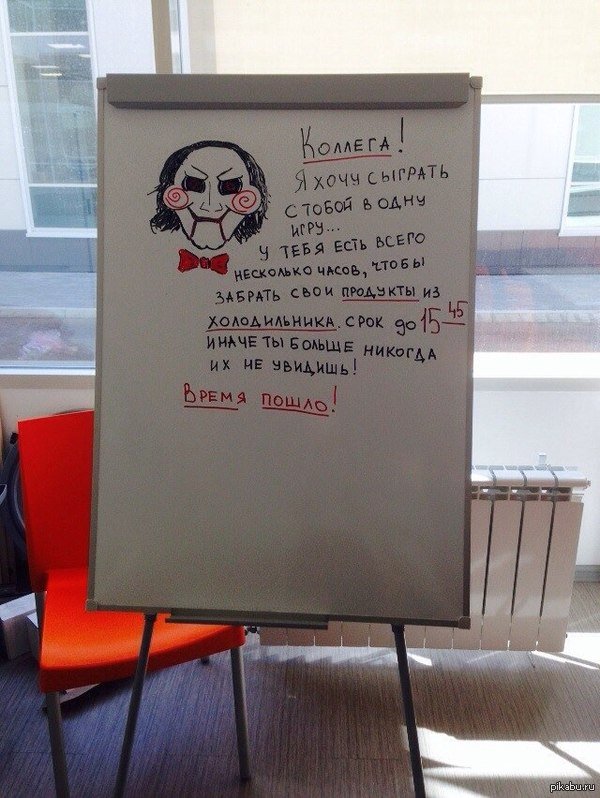 Коллега!
Я хочу сыграть
с тобой в одну
игру...
У тебя есть всего
несколько часов, чтобы
забрать свои продукты из
холодильника. срок до 15 45
иначе ты больше никогда
их не увидишь!
Время пошло!
pikabu.ru